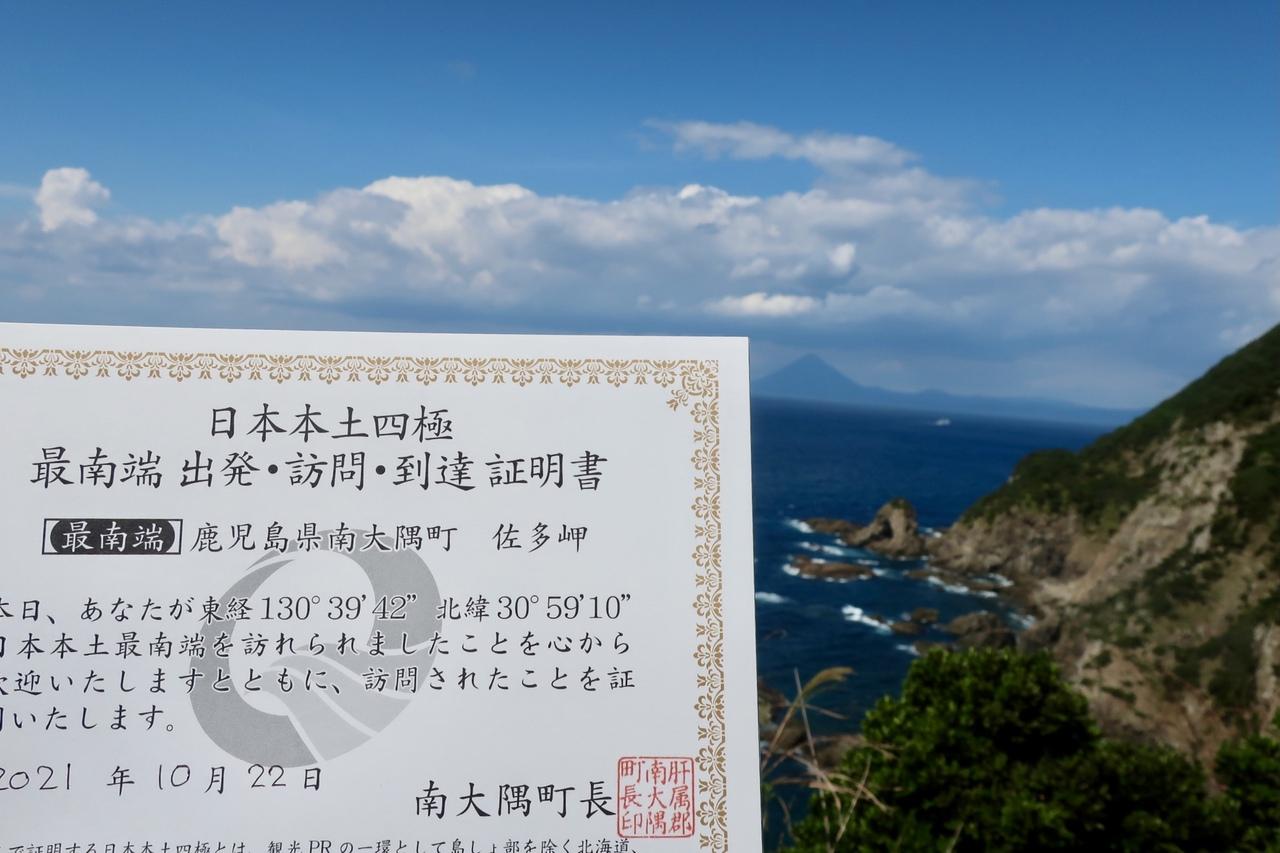 日本本土四極
最南端 出発・訪問・到達 証明書
最南端 鹿児島県南大隅町 佐多岬
本日、あなたが東経130°39’42” 北緯30°59’10”
日本本土最南端を訪れられましたことを心から
歓迎いたしますとともに、訪問されたことを証
明いたします。
2021 年 10 月 22 日
南大隅町長
肝属郡
南大隅
町長印
で証明する日本本土四極とは、観光PRの一環として島しょ部を除く北海道、